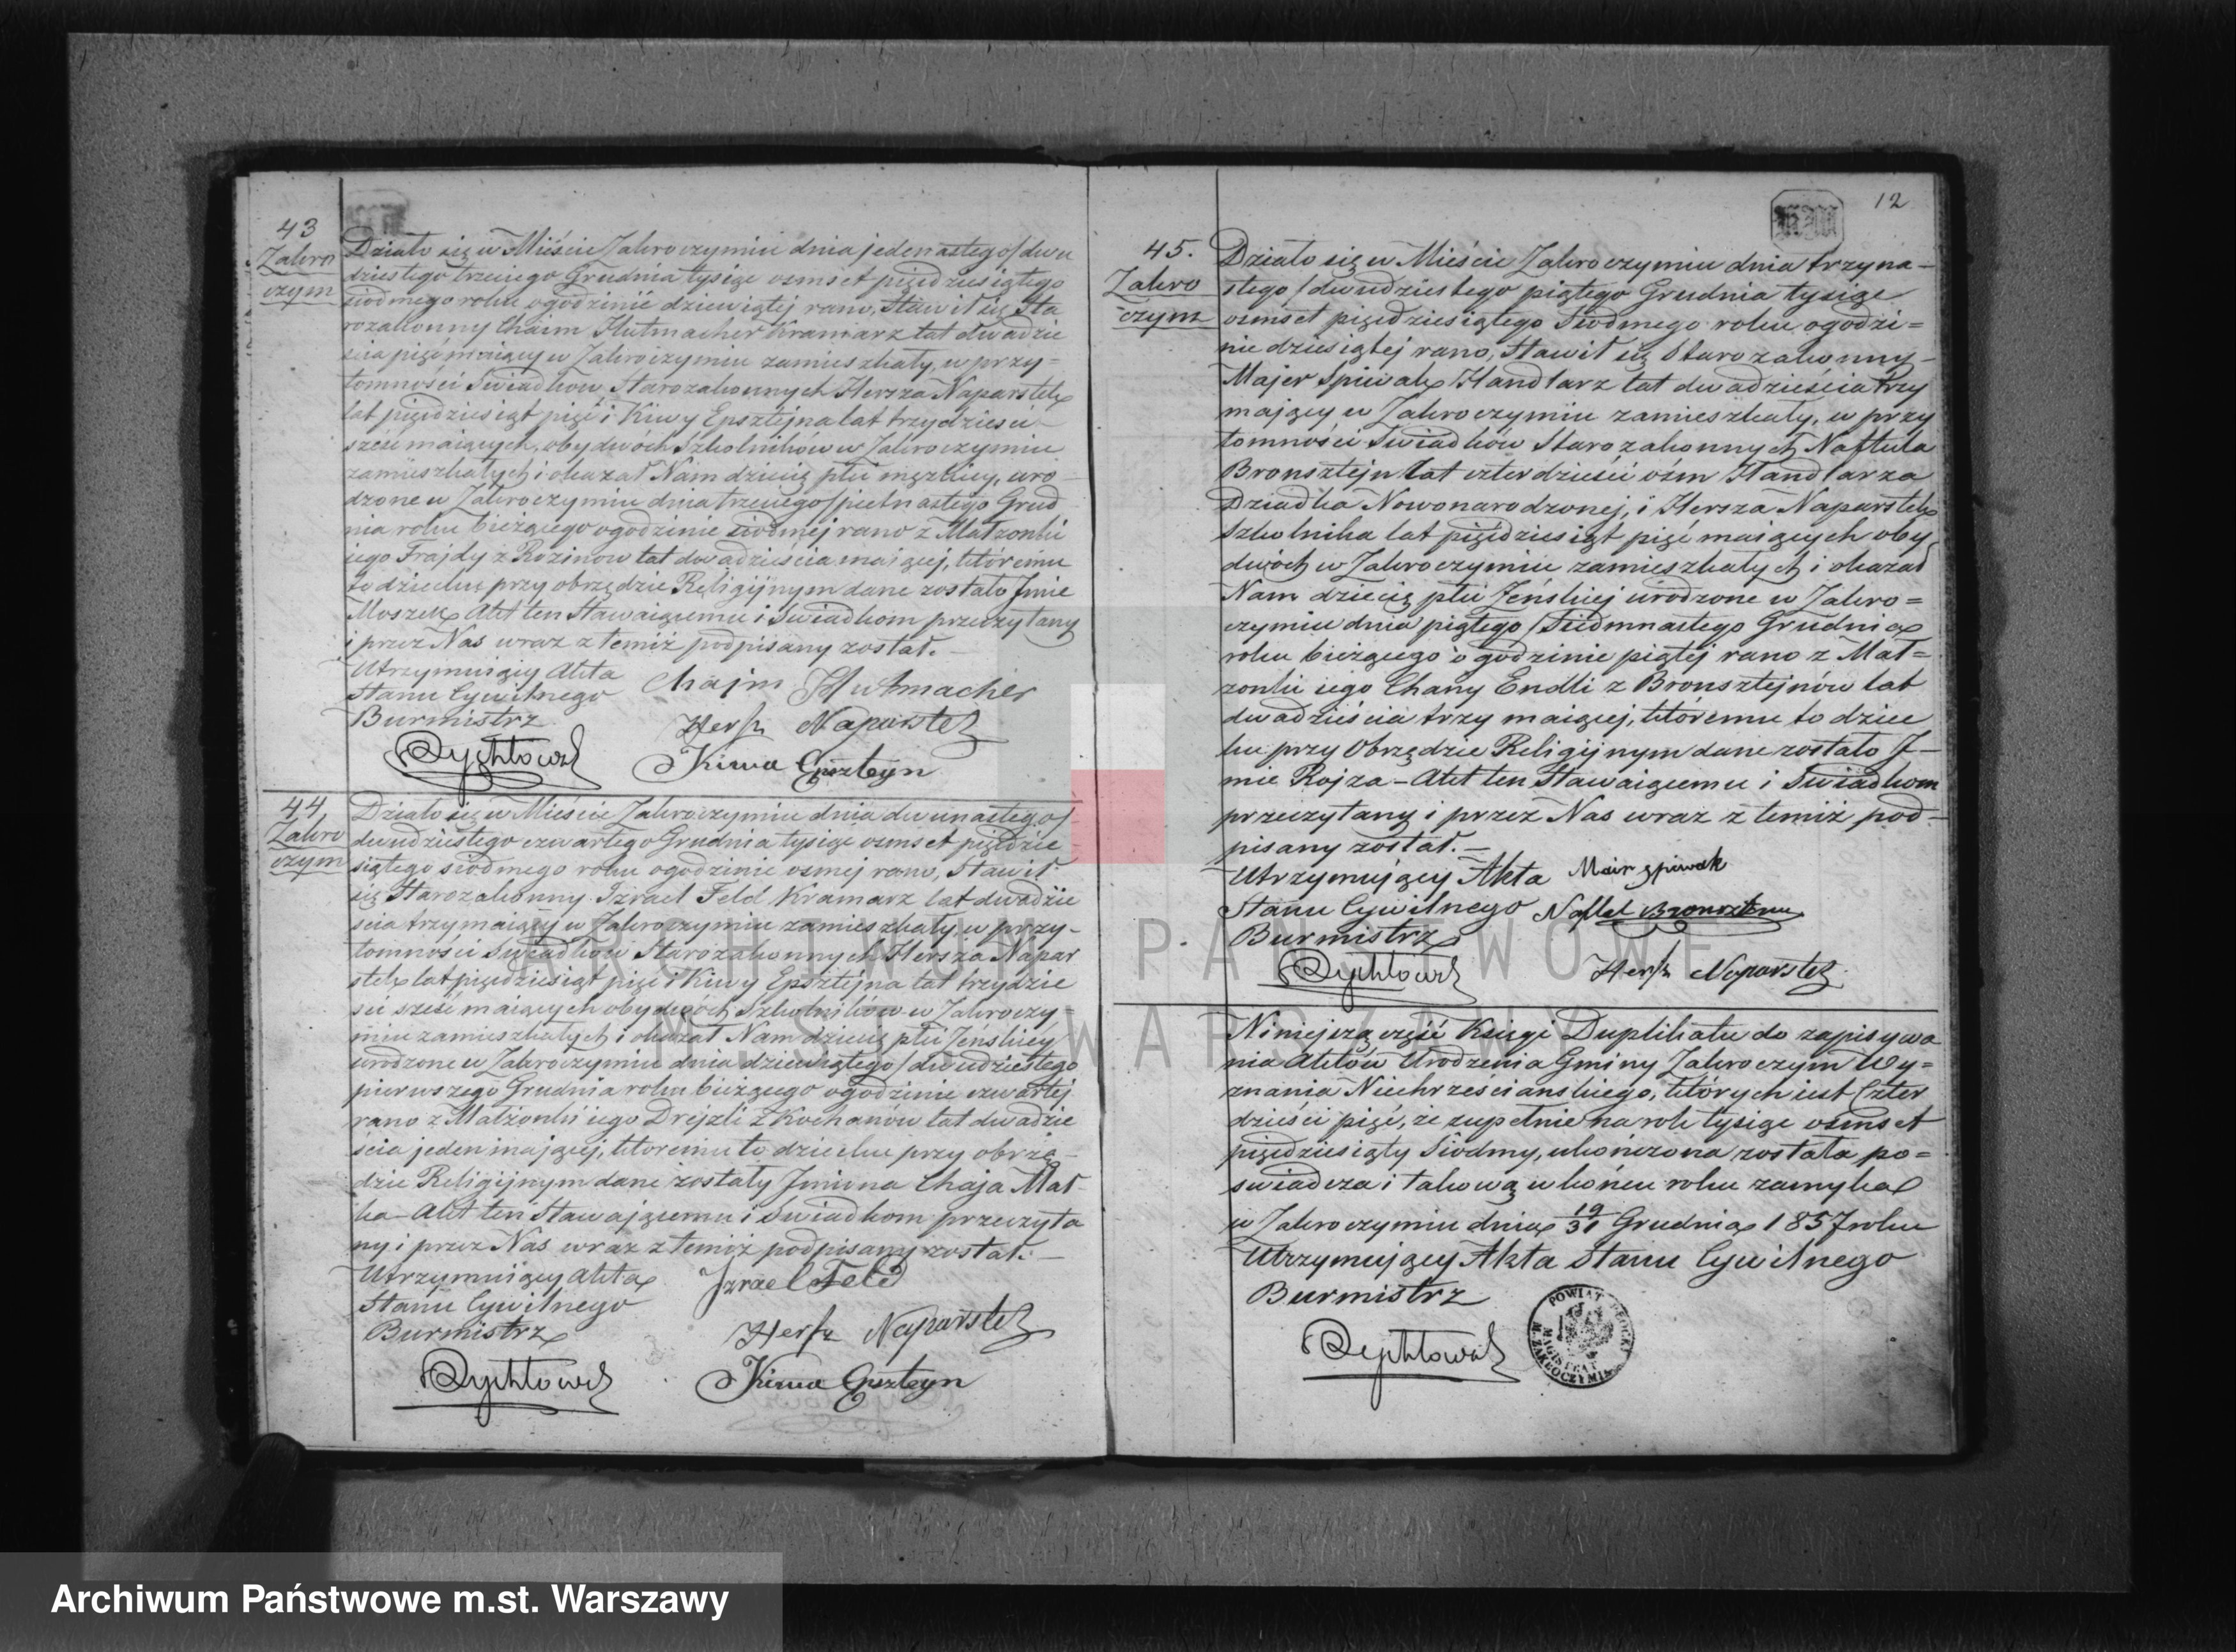 43
Zakro
czym
Działo się w Mieście Zakroczymiu dnia jedenastego/dwu
dziestego trzeciego Grudnia tysiąc ośmset pięćdziesiątego
siódmego roku o godzinie dziewiątej rano, Stawił się Sta
rozakonny Chaim Hutmacher Kramarz lat dwadzie
ścia pięć maiący w Zakroczymiu zamieszkały, w przy=
tomności Świadków Starozakonnych Hersza Naparstek
lat pięćdziesiąt pięć i Kiwy Epsztejna lat trzydzieści
sześć maiących, obydwóch Szkolników w Zakroczymiu
zamieszkałych i okazał Nam dziecię płci męzkiey, uro
dzone w Zakroczymiu dnia trzeciego/piętnastego Grud
nia roku bieżącego o godzinie siódmej rano z Małżonki
iego Frajdy z Rozinów lat dwadzieścia maiącej, któremu
to dziecku przy obrzędzie Religijnym dane zostało Jmie
Moszek. Akt ten Stawaiącemu i Świadkom przeczytany
i przez Nas wraz z temiż podpisany został.
Utrzymuiący Akta
Stanu Cywilnego
Burmistrz
Chajm Hutmacher
Hersk Naparstek
Kiwa Epszteyn
44
Zakro
czym
Działo się w Mieście Zakroczymiu dnia dwunastego/
dwudziestego czwartego Grudnia tysiąc ośmset pięćdzie
siątego siódmego roku o godzinie ósmej rano, Stawił
się Starozakonny Izrael Feld Kramarz lat dwadzie
ścia trzy maiący w Zakroczymiu zamieszkały, w przy-
tomności Świadków Starozakonnych Hersza Napar
stek lat pięćdziesiąt pięć i Kiwy Epsztejna lat trzydzie
ści sześć maiących obydwóch Szkolników w Zakroczy-
miu zamieszkałych i okazał Nam dziecię płci Żeńskiéy
urodzone w Zakroczymiu dnia dziewiątego/dwudziestego
pierwszego Grudnia roku bieżącego o godzinie czwartej
rano z Małżonki iego Drejzli z Kochanów lat dwadzie
ścia jeden mającej, któremu to dziecku przy obrzę-
dzie Religijnym dane zostały Jmiona Chaja Mał
ka – Akt ten Stawającemu i Świadkom przeczyta
ny i przez Nas wraz z temiż podpisany został. –
Utrzymuiący Akta
Stanu Cywilnego
Burmistrz
Izrael Feld
Hersk Naparstek
Kiwa Epszteyn
12
45.
Zakro
czym
Działo się w Mieście Zakroczymiu dnia trzyna–
stego/dwudziestego piątego Grudnia tysiąc
ośmset pięćdziesiątego Siódmego roku, o godzi=
nie dziesiątej rano, Stawił się Starozakonny–
Majer Śpiwak Handlarz lat dwadzieścia trzy
mający w Zakroczymiu zamieszkały, w przy
tomności Świadków Starozakonnych Naftula
Bronsztejn lat czterdzieści ośm Handlarza
Dziadka Nowonarodzonej, i Hersza Naparstek
Szkolnika lat pięćdziesiąt pięć maiących oby
dwóch w Zakroczymiu zamieszkałych i okazał
Nam dziecię płci Żeńskiej urodzone w Zakro=
czymiu dnia piątego/Siedmnastego Grudnia
roku bieżącego o godzinie piątej rano z Mał=
żonki iego Chany Endli z Bronsztejnów lat
dwadzieścia trzy maiącej, któremu to dziec
ku przy Obrzędzie Religijnym dane zostało J–
mie Rojza – Akt ten Stawaiącemu i Świadkom
przeczytany i przez Nas wraz z temiż pod–
pisany został. –
Utrzymujący Akta
Stanu Cywilnego
Burmistrz
Mair Spiwak
Naftel Bronsztein
Hersk Naparstek
Niniejszą część Księgi Duplikatu do zapisywa
nia Aktów Urodzenia Gminy Zakroczym Wy=
znania Niechrześcianskiego, których iest Czter
dzieści pięć, że zupełnie na rok tysiąc ośmset
pięćdziesiąty Siódmy, ukończona została po=
świadcza i takową w końcu roku zamyka
w Zakroczymiu dnia 19/31 Grudnia 1857 roku
Utrzymujący Akta Stanu Cywilnego
Burmistrz
ARCHIWUM PAŃSTWOWE
M.ST. WARSZAWY
Archiwum Państwowe m.st. Warszawy